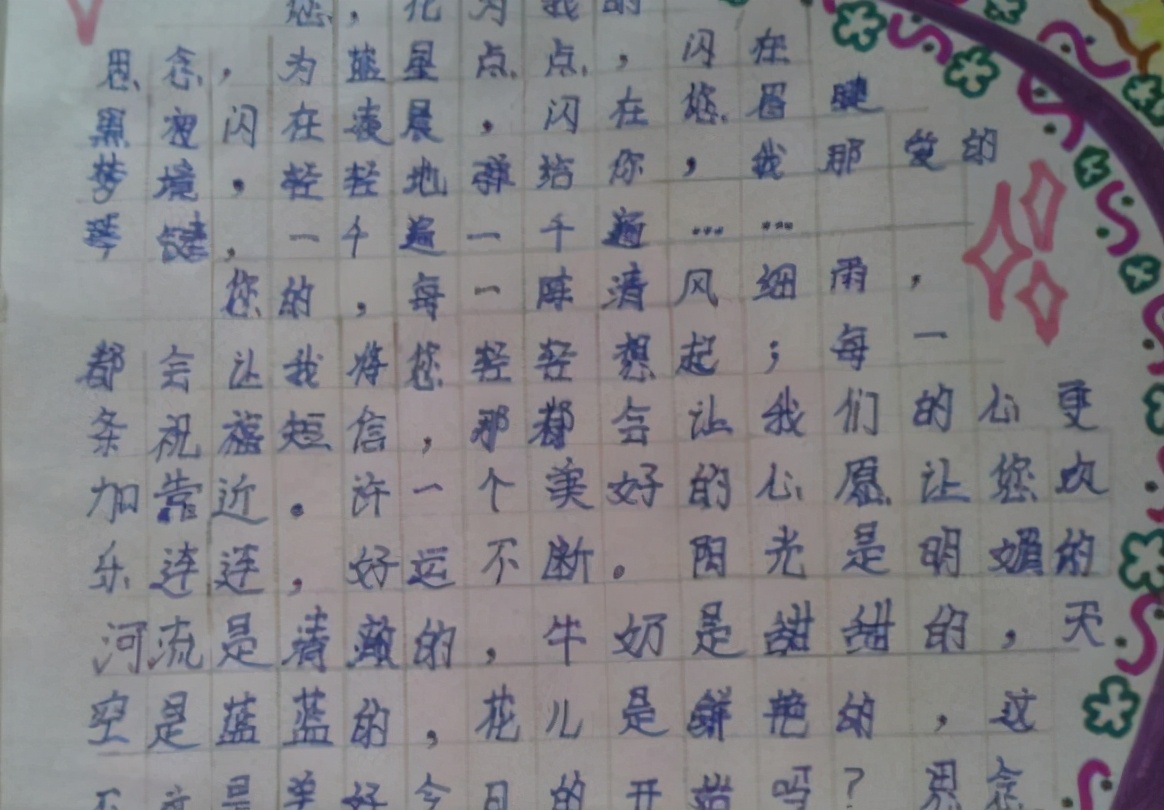 您，化为我的
思念，为蓝星点点，闪在
黑夜闪在凌晨，闪在您眉睫
梦境，轻轻地弹给你，我那爱的
琴键，一千遍一千遍……
您的，每一阵清风细雨，
都会让我将您轻轻想起；每一
条祝福短信，那都会让我们的心更
加靠近。许一个美好的心愿让您欢
乐连连，好运不断。阳光是明媚的
河流是清澈的，牛奶是甜甜的，天
空是蓝蓝的，花儿是鲜艳的，这
不应是美好今日的开始吗？思念